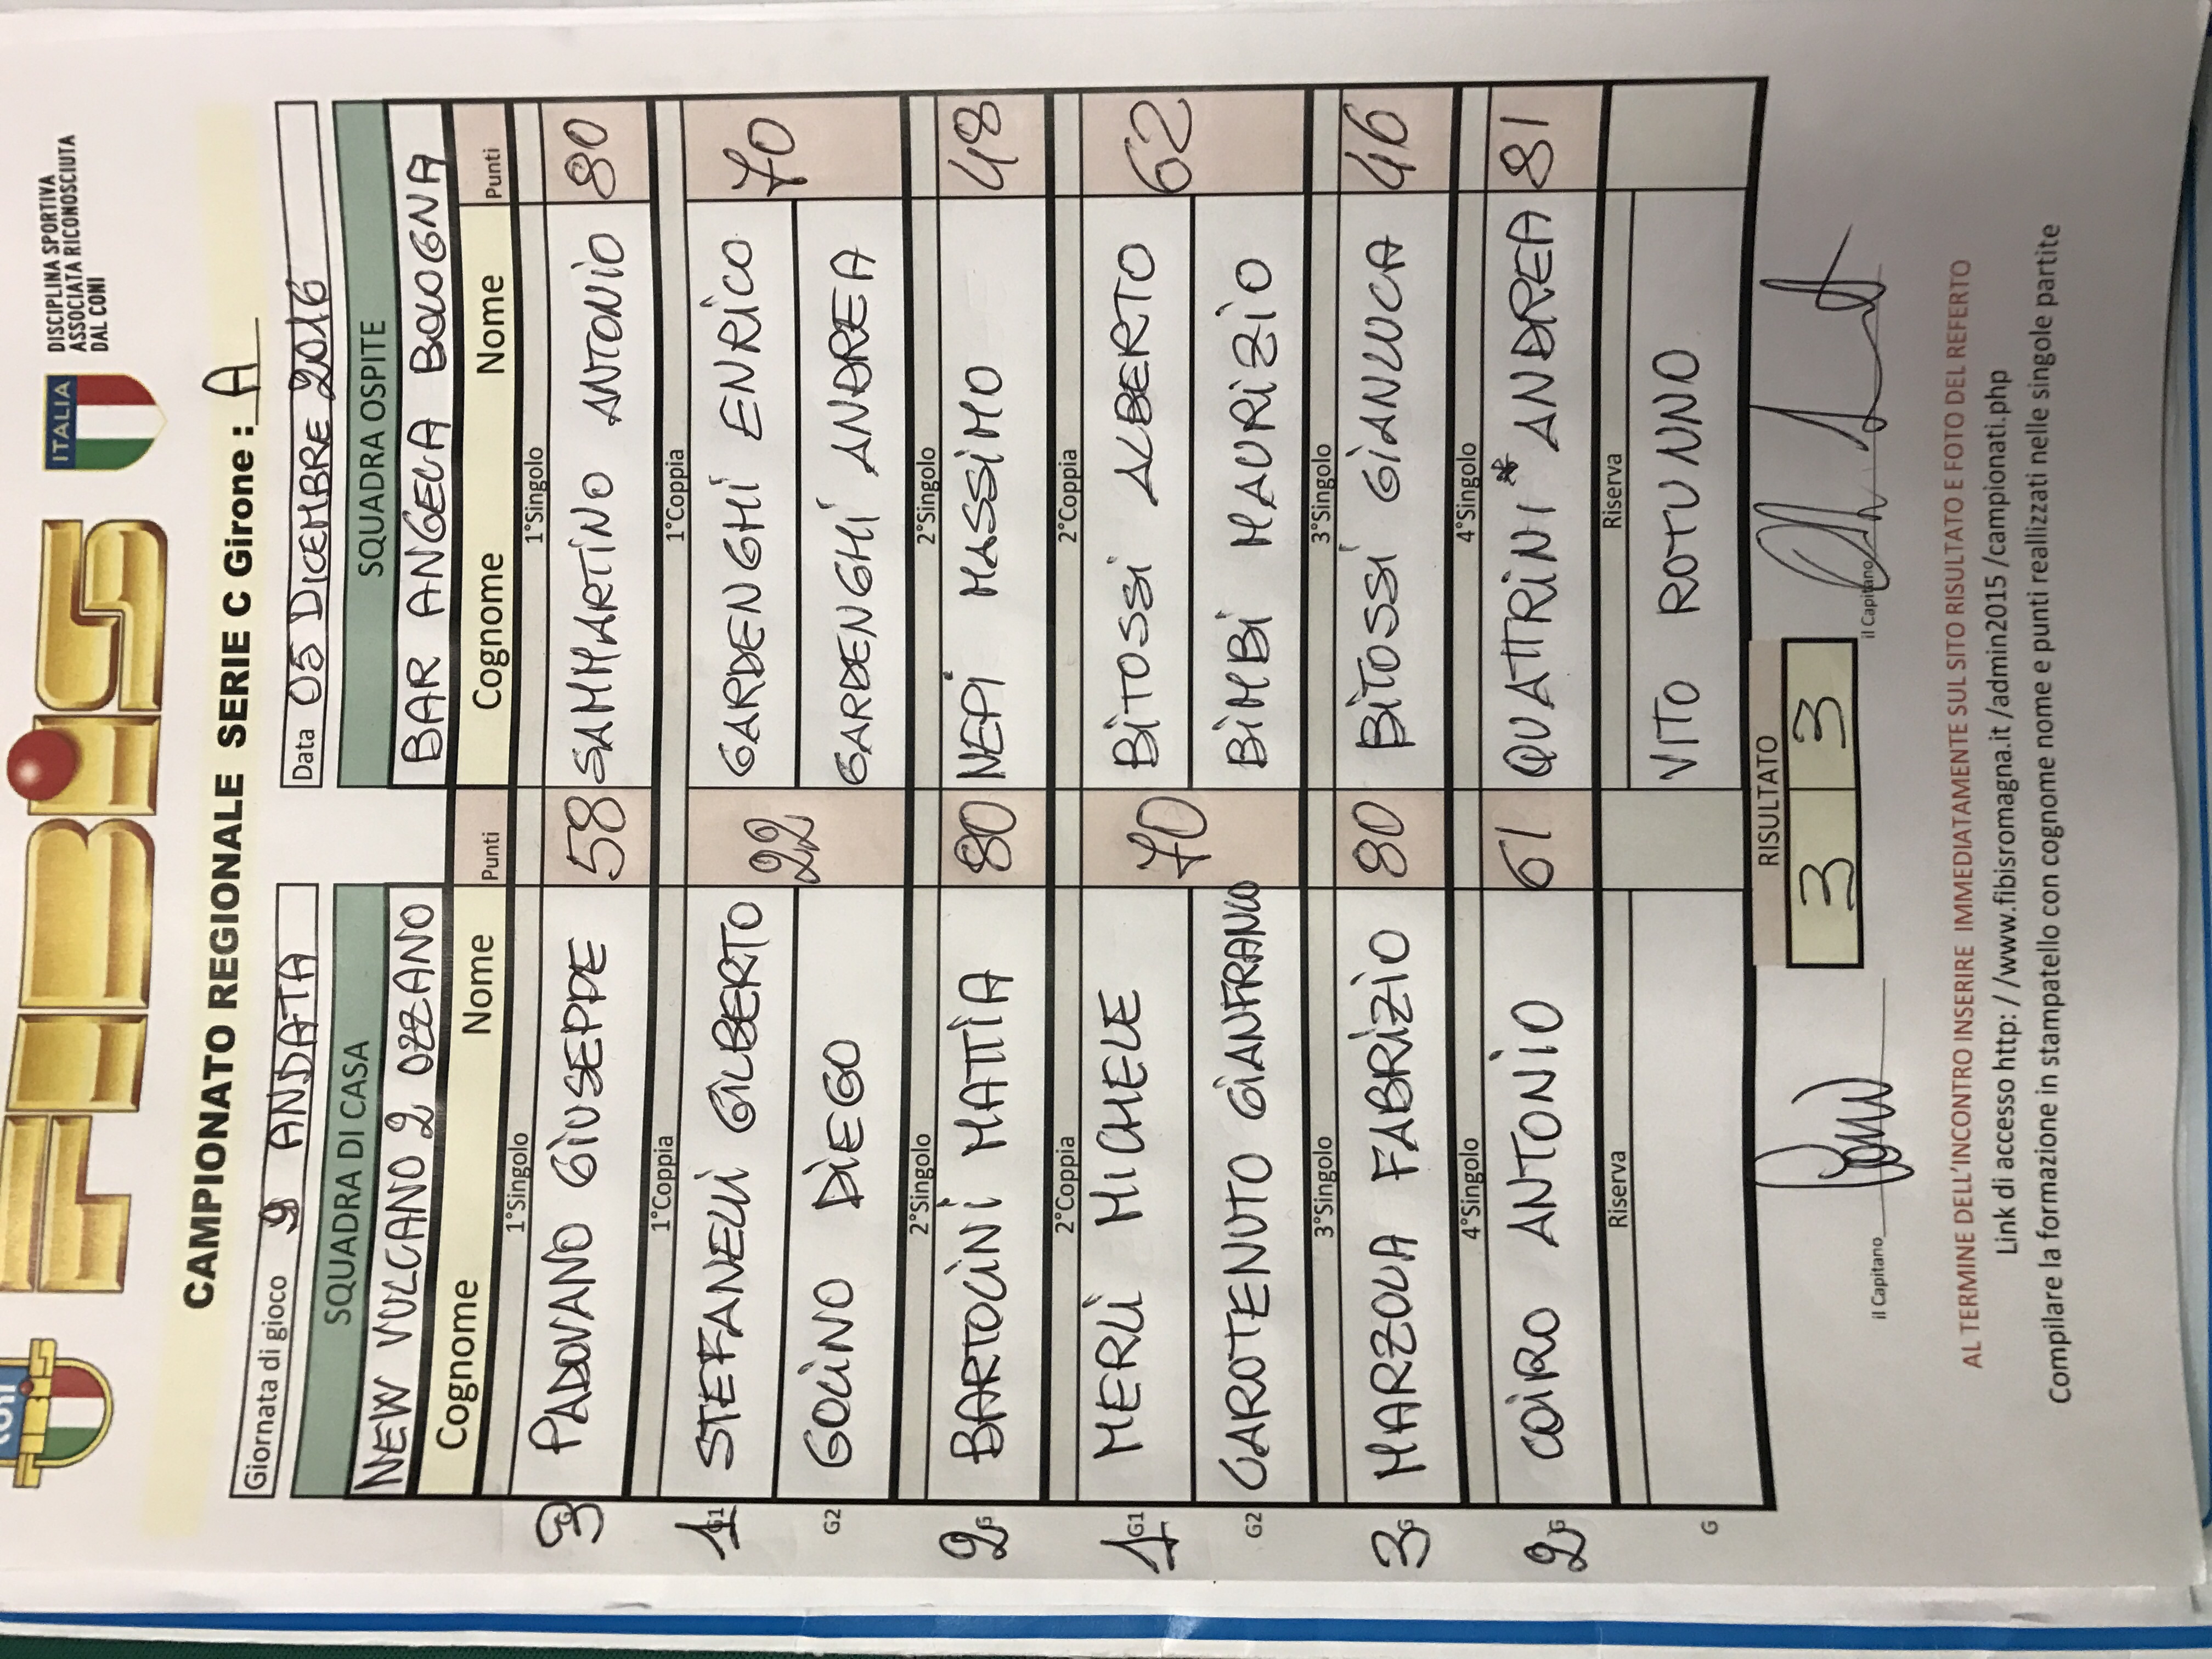 CONI
FIBiS
ITALIA
DISCIPLINA SPORTIVA
ASSOCIATA RICONOSCIUTA
DAL CONI
CAMPIONATO REGIONALE SERIE C Girone : A
Giornata di gioco 9 ANDATA
Data 05 DICEMBRE 2016
SQUADRA DI CASA SQUADRA OSPITE
NEW VULCANO 2 OZZANO BAR ANGELA BOLOGNA
Cognome Nome Punti Cognome Nome Punti
1°Singolo 1°Singolo
3 PADOVANO GIUSEPPE 58 SAMMARTINO ANTONIO 80
1°Coppia 1°Coppia
1 G1 STEFANELLI GILBERTO 22 GARDENGHI ENRICO 70
G2 GOLINO DIEGO GARDENGHI ANDREA
2°Singolo 2°Singolo
2 G BARTOLINI MATTIA 80 NEPI MASSIMO 48
2°Coppia 2°Coppia
1 G1 MERLI MICHELE 70 BITOSSI ALBERTO 62
G2 CAROTENUTO GIANFRANCO BIMBI MAURIZIO
3°Singolo 3°Singolo
3 G MARZOLA FABRIZIO 80 BITOSSI GIANLUCA 46
4°Singolo 4°Singolo
2 G COIRO ANTONIO 61 QUATTRINI * ANDREA 81
Riserva Riserva
G VITO ROTUNNO
RISULTATO
3 3
il Capitano il Capitano
AL TERMINE DELL'INCONTRO INSERIRE IMMEDIATAMENTE SUL SITO RISULTATO E FOTO DEL REFERTO
Link di accesso http: / /www.fibisromagna.it /admin2015 /campionati.php
Compilare la formazione in stampatello con cognome nome e punti realizzati nelle singole partite